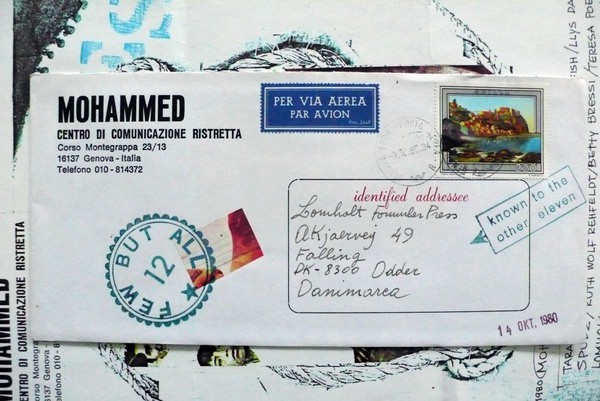 MOHAMMED
CENTRO DI COMUNICAZIONE RISTRETTA
Corso Montegrappa 23/13
16137 Genova - Italia
Telefono 010 - 814372
PER VIA AEREA
PAR AVION
identified addressee
Lomholt Formular Press
AKjaervej 49
Falling
DK-8300 Odder
Danimarca
known to the
other eleven
FEW BUT ALL
12
14 OKT. 1980
MOHAMMED
CENTRO DI COMUNICAZIONE RISTRETTA
Corso Montegrappa
16137 Genova
Telefono 010 - 8
RUTH WOLF REHFELDT/BETTY BRESSI/TERESA